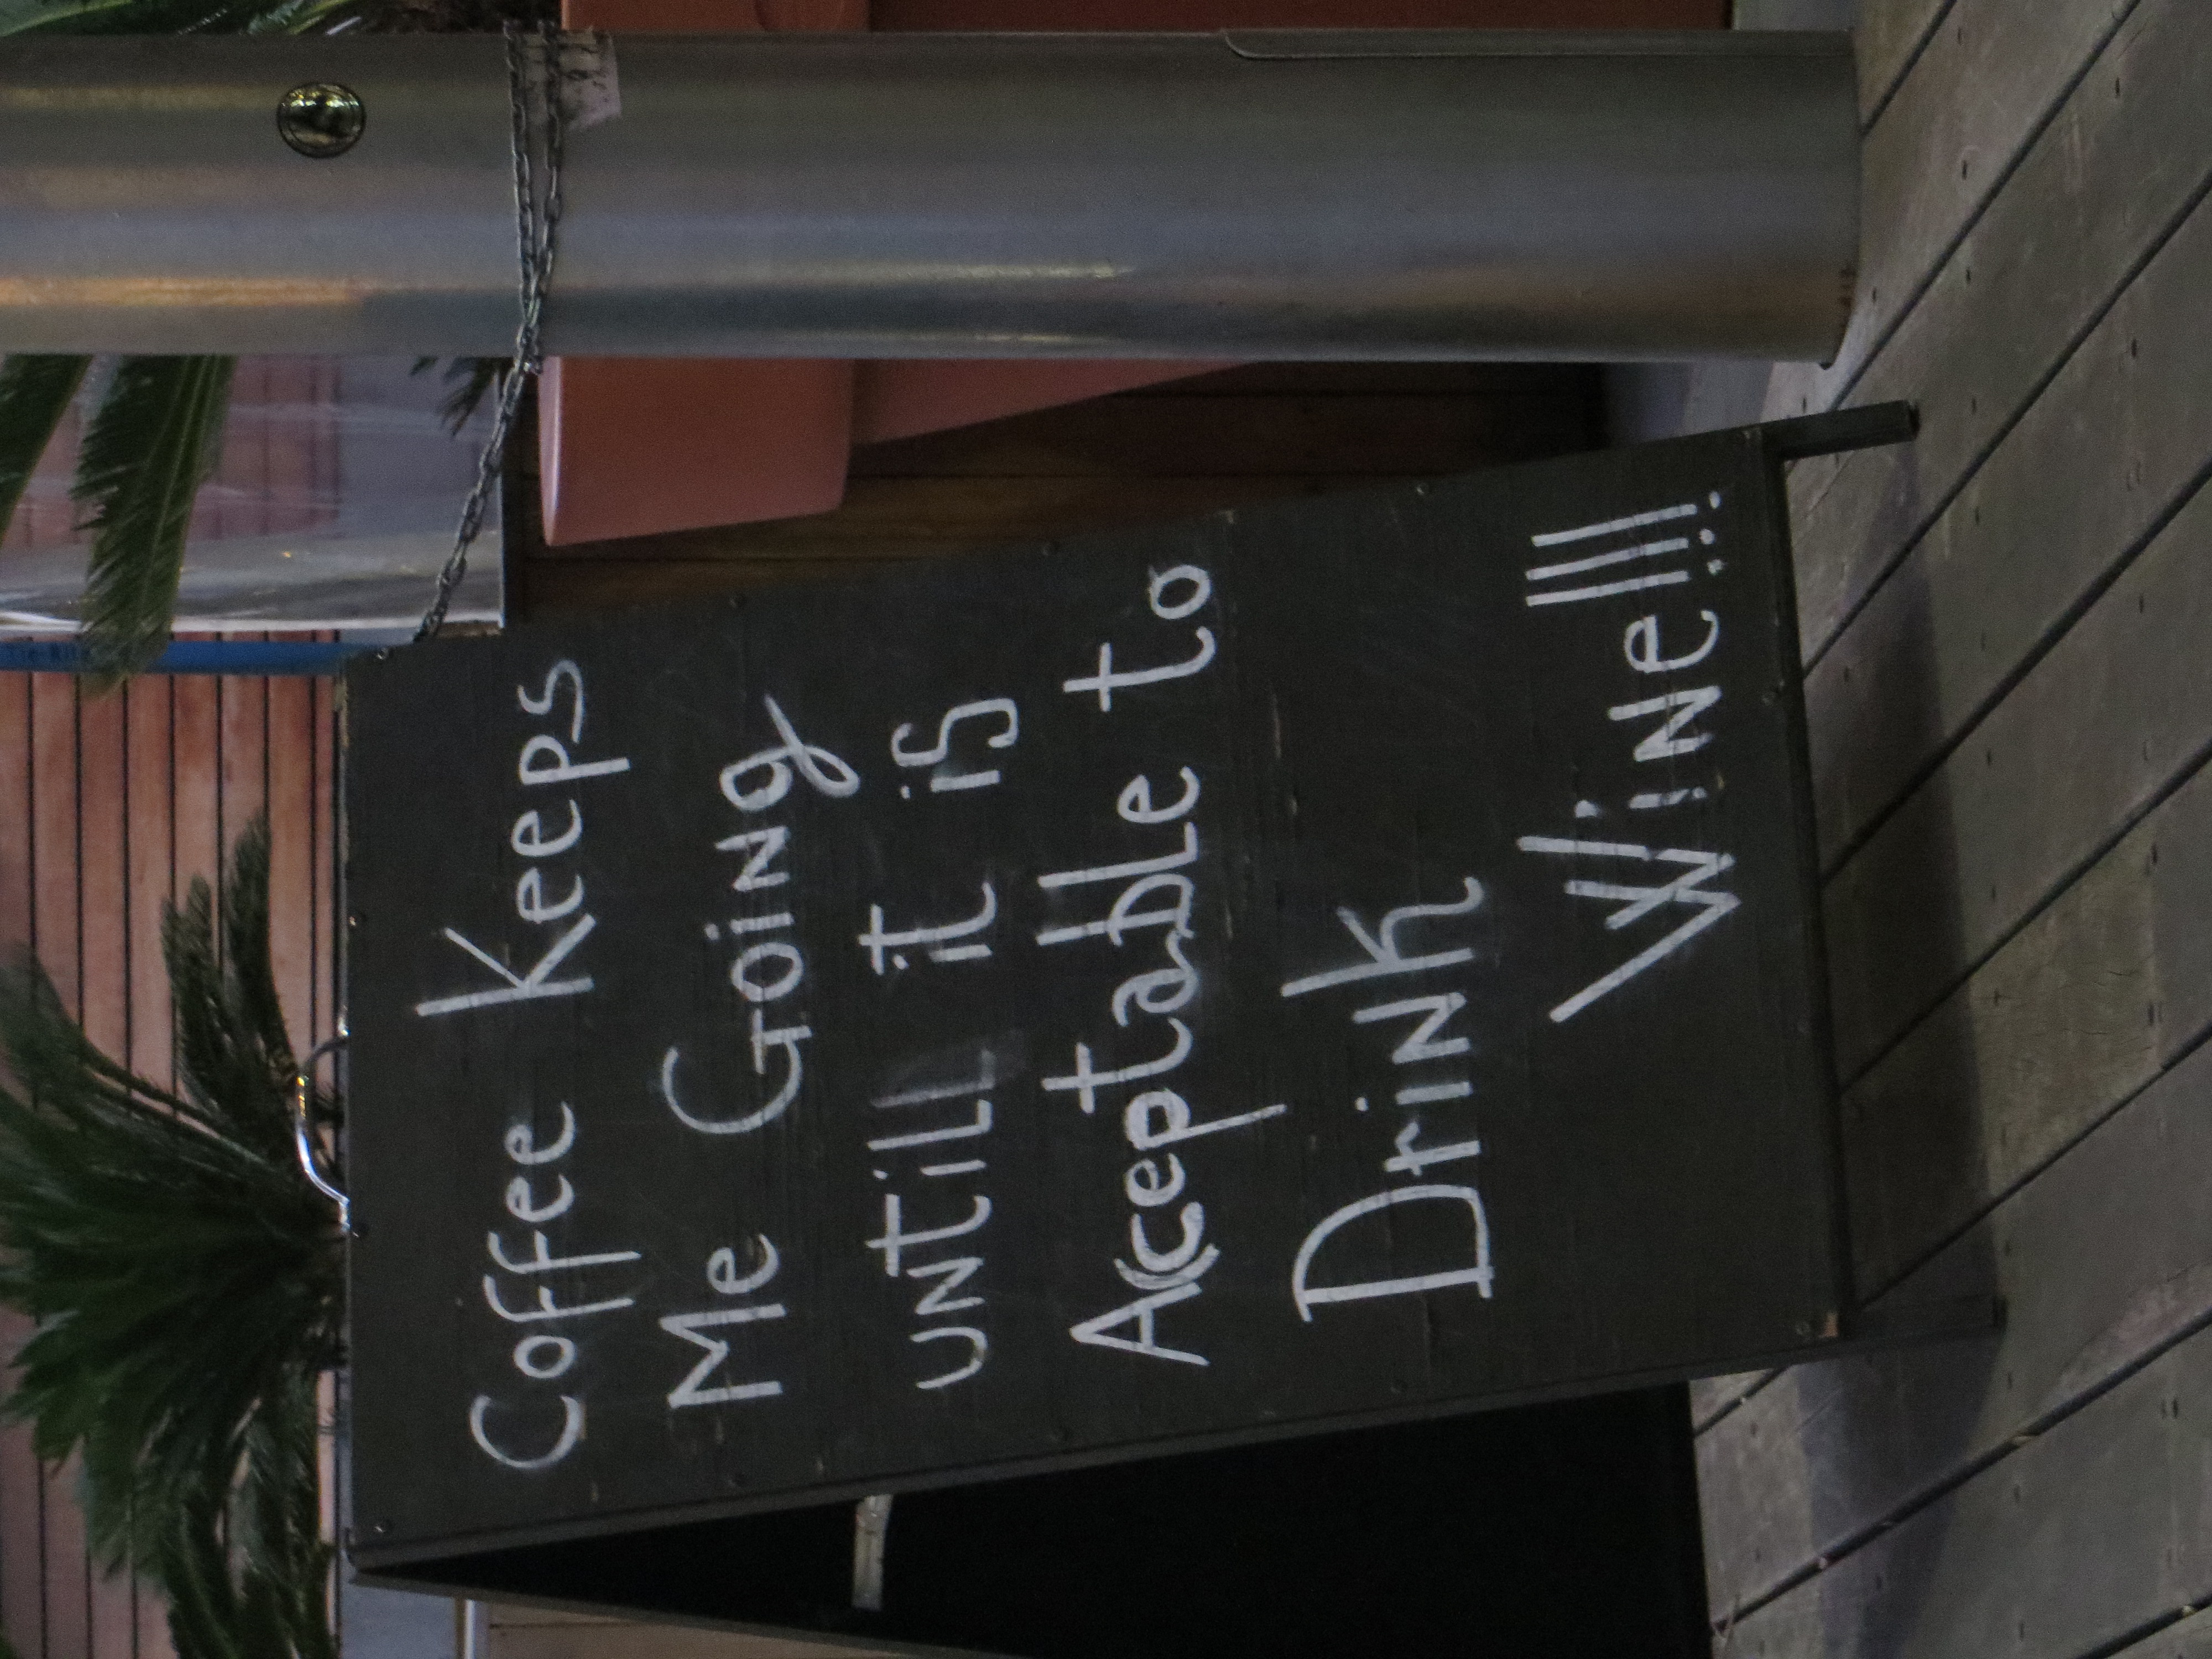 Coffee Keeps
Me Going
until it is
Acceptable to
Drink
Wine!!!